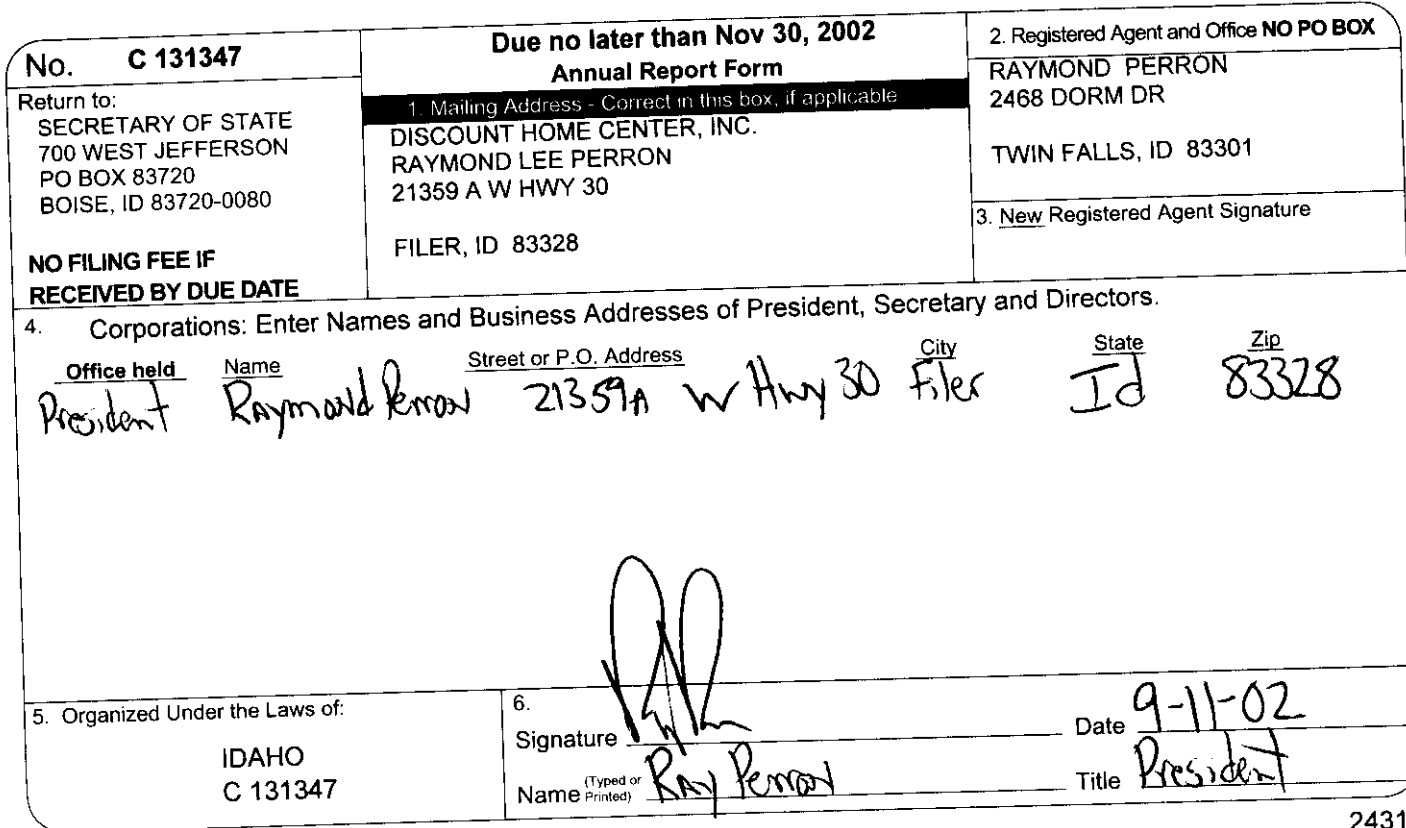 No. C 131347
Return to:
SECRETARY OF STATE
700 WEST JEFFERSON
PO BOX 83720
BOISE, ID 83720-0080
NO FILING FEE IF
RECEIVED BY DUE DATE
Due no later than Nov 30, 2002
Annual Report Form
1. Mailing Address - Correct in this box, if applicable
DISCOUNT HOME CENTER, INC.
RAYMOND LEE PERRON
21359 A W HWY 30
FILER, ID 83328
2. Registered Agent and Office NO PO BOX
RAYMOND PERRON
2468 DORM DR
TWIN FALLS, ID 83301
3. New Registered Agent Signature
4. Corporations: Enter Names and Business Addresses of President, Secretary and Directors.
Office held Name Street or P.O. Address City State Zip
President Raymond Perron 21359A W Hwy 30 Filer Id 83328
5. Organized Under the Laws of:
IDAHO
C 131347
6.
Signature
Date 9-11-02
Name (Typed or Printed) Ray Perron
Title President
2431